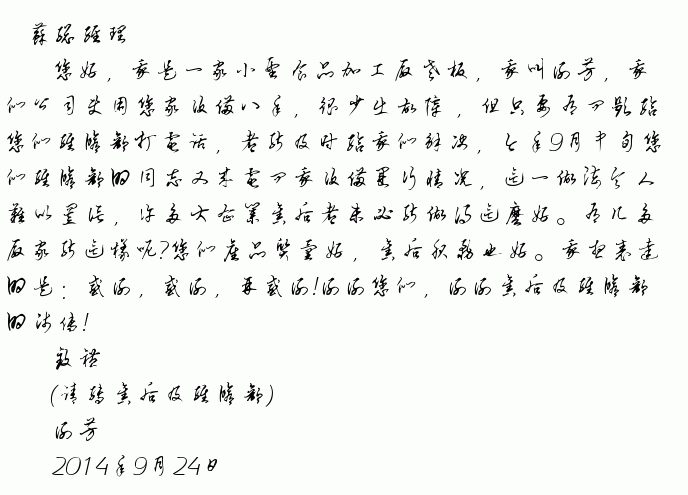 苏总经理
您好，我是一家小型食品加工厂老板，我叫谢芳，我
们公司使用您家设备八年，很少出故障，但只要有问题给
您们经销部打电话，都能及时给我们解决，今年9月中旬您
们经销部的同志又来电问我设备运行情况，这一做法令人
难以置信，许多大企业售后都未必能做得这麽好。有几多
厂家能这样呢?您们产品质量好，售后服务也好。我想表达
的是：感谢，感谢，再感谢!谢谢您们，谢谢售后及经销部
的师傅!
致礼
(请转售后及经销部)
谢芳
2014年9月24日